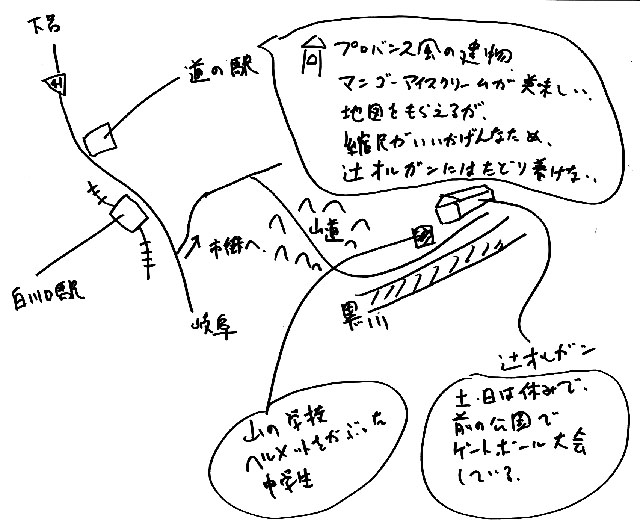 下呂
41
道の駅
プロバンス風の建物
マンゴーアイスクリームが美味しい、
地図をもらえるが、
縮尺がいいかげんなため、
辻オルガンにはたどり着けない、
白川口駅
市郷へ、
山道
岐阜
黒川
辻オルガン
山の学校
ヘルメットをかぶった
中学生
土・日は休みで、
前の公園で
ゲートボール大会
している。